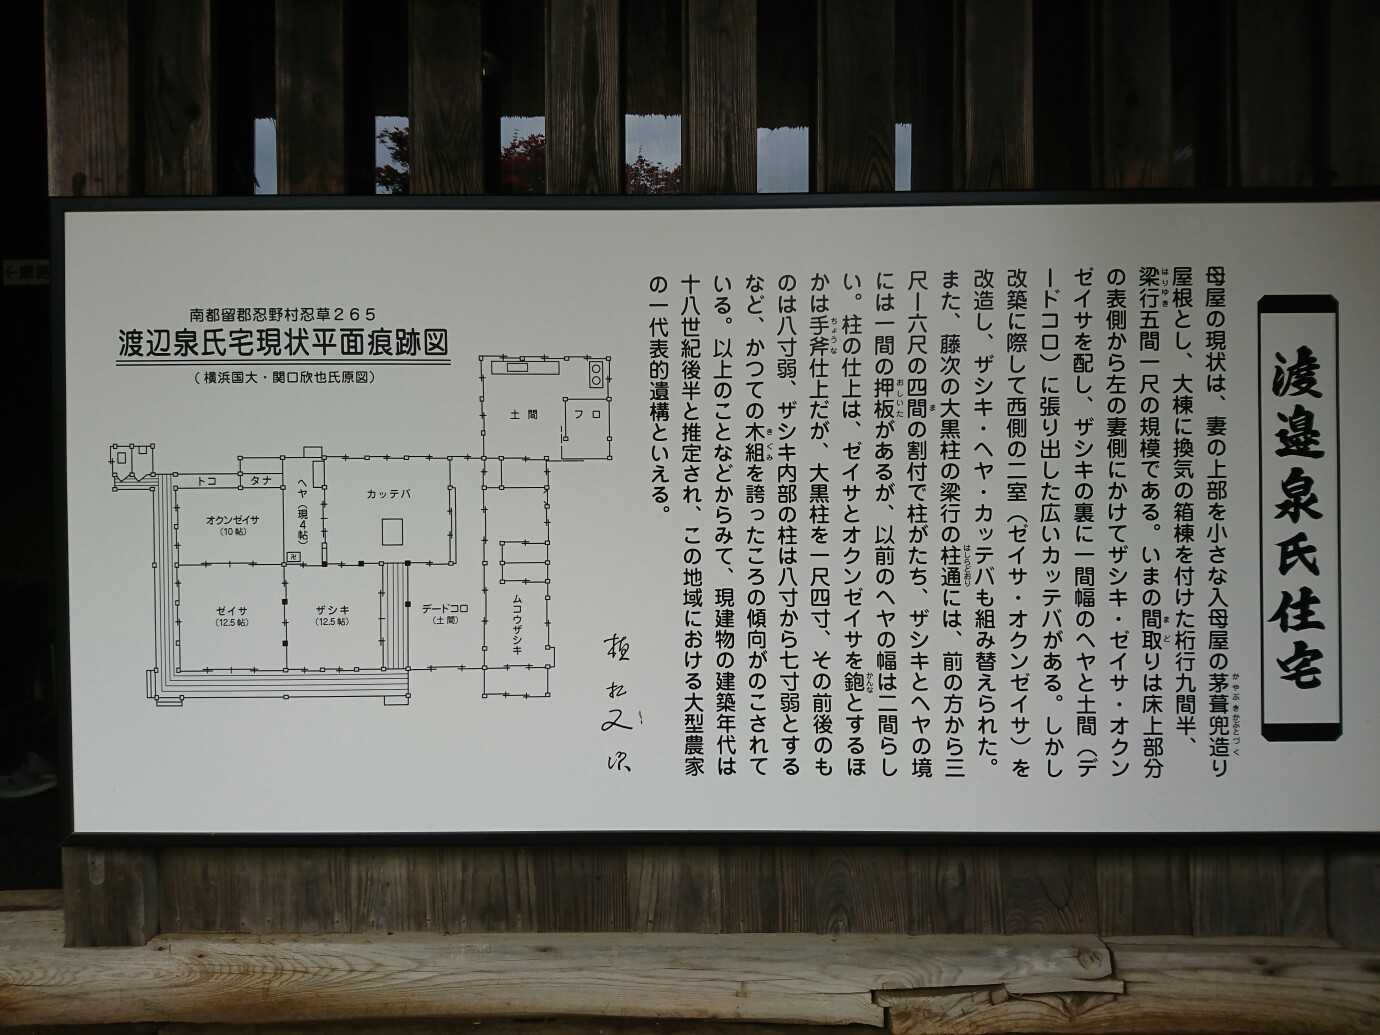 渡邉泉氏住宅
母屋の現状は、妻の上部を小さな入母屋の茅葺兜造り
かやぶきかぶとづく
屋根とし、大棟に換気の箱棟を付けた桁行九間半、
梁行五間一尺の規模である。いまの間取りは床上部分
はりゆき
まど
の表側から左の妻側にかけてザシキ・ゼイサ・オクン
ゼイサを配し、ザシキの裏に一間幅のヘヤと土間（デ
ードコロ）に張り出した広いカッテバがある。しかし
改築に際して西側の二室（ゼイサ・オクンゼイサ）を
改造し、ザシキ・ヘヤ・カッテバも組み替えられた。
また、藤次の大黒柱の梁行の柱通には、前の方から三
はしらどおり
尺ー六尺の四間の割付で柱がたち、ザシキとヘヤの境
ま
には一間の押板があるが、以前のヘヤの幅は二間らし
おしいた
い。柱の仕上は、ゼイサとオクンゼイサを鉋とするほ
かんな
かは手斧仕上だが、大黒柱を一尺四寸、その前後のも
ちょうな
のは八寸弱、ザシキ内部の柱は八寸から七寸弱とする
など、かつての木組を誇ったころの傾向がのこされて
きぐみ
いる。以上のことなどからみて、現建物の建築年代は
十八世紀後半と推定され、この地域における大型農家
の一代表的遺構といえる。
南都留郡忍野村忍草２６５
渡辺泉氏宅現状平面痕跡図
（横浜国大・関口欣也氏原図）
土間
フロ
トコ
タナ
ヘヤ（現4帖）
カッテバ
オクンゼイサ
（10帖）
卍
ゼイサ
（12.5帖）
ザシキ
（12.5帖）
デードコロ
（土間）
ムコウザシキ